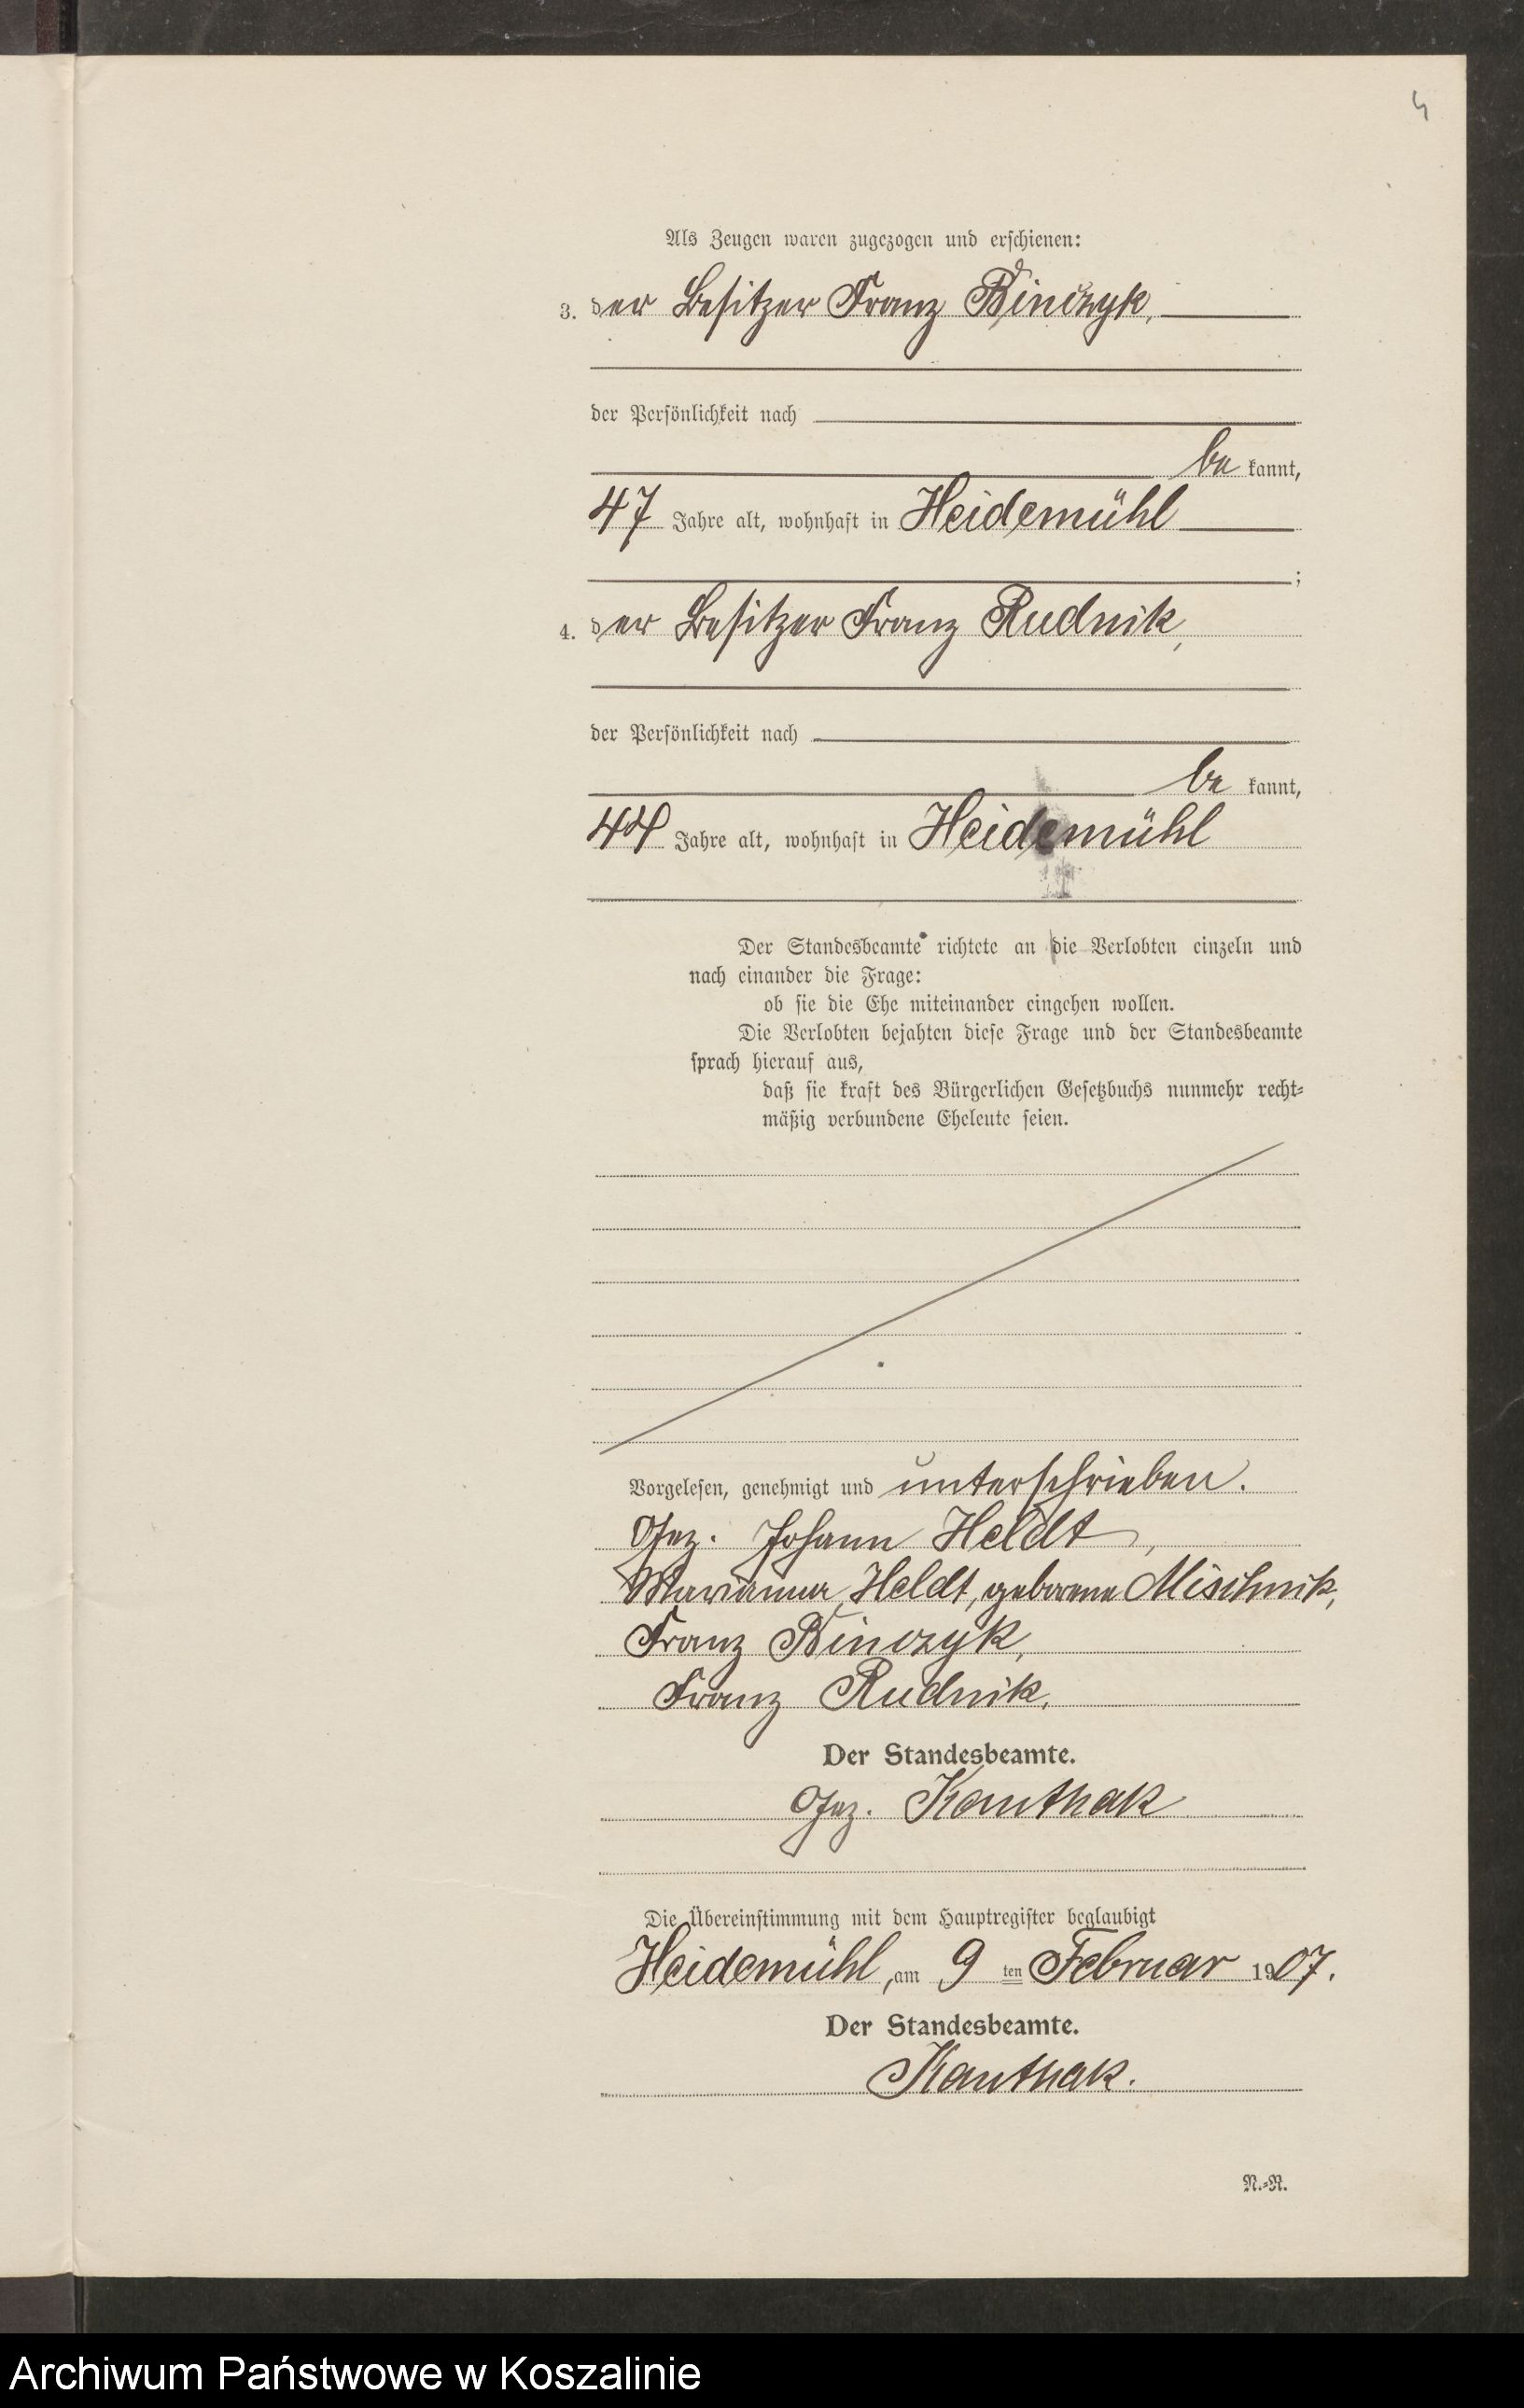 4
Als Zeugen waren zugezogen und erschienen:
3. der Besitzer Franz Binczyk,
der Persönlichkeit nach
be kannt,
47 Jahre alt, wohnhaft in Heidemühl
;
4. der Besitzer Franz Rudnik,
der Persönlichkeit nach
be kannt,
44 Jahre alt, wohnhaft in Heidemühl
Der Standesbeamte richtete an die Verlobten einzeln und
nach einander die Frage:
ob sie die Ehe miteinander eingehen wollen.
Die Verlobten bejahten diese Frage und der Standesbeamte
sprach hierauf aus,
daß sie kraft des Bürgerlichen Gesetzbuchs nunmehr recht-
mäßig verbundene Eheleute seien.
Vorgelesen, genehmigt und unterschrieben.
Gez. Johann Heldt,
Marianna Heldt, geborene Mischnik,
Franz Binczyk,
Franz Rudnik.
Der Standesbeamte.
Gez. Kauthak
Die Übereinstimmung mit dem Hauptregister beglaubigt
Heidemühl, am 9 ten Februar 1907.
Der Standesbeamte.
Kauthak.
N.-R.
Archiwum Państwowe w Koszalinie